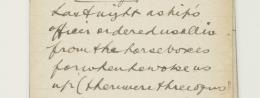 Last night a ship's
officer ordered us all in
from the horse boxes
for when he woke us
up (there were three of us